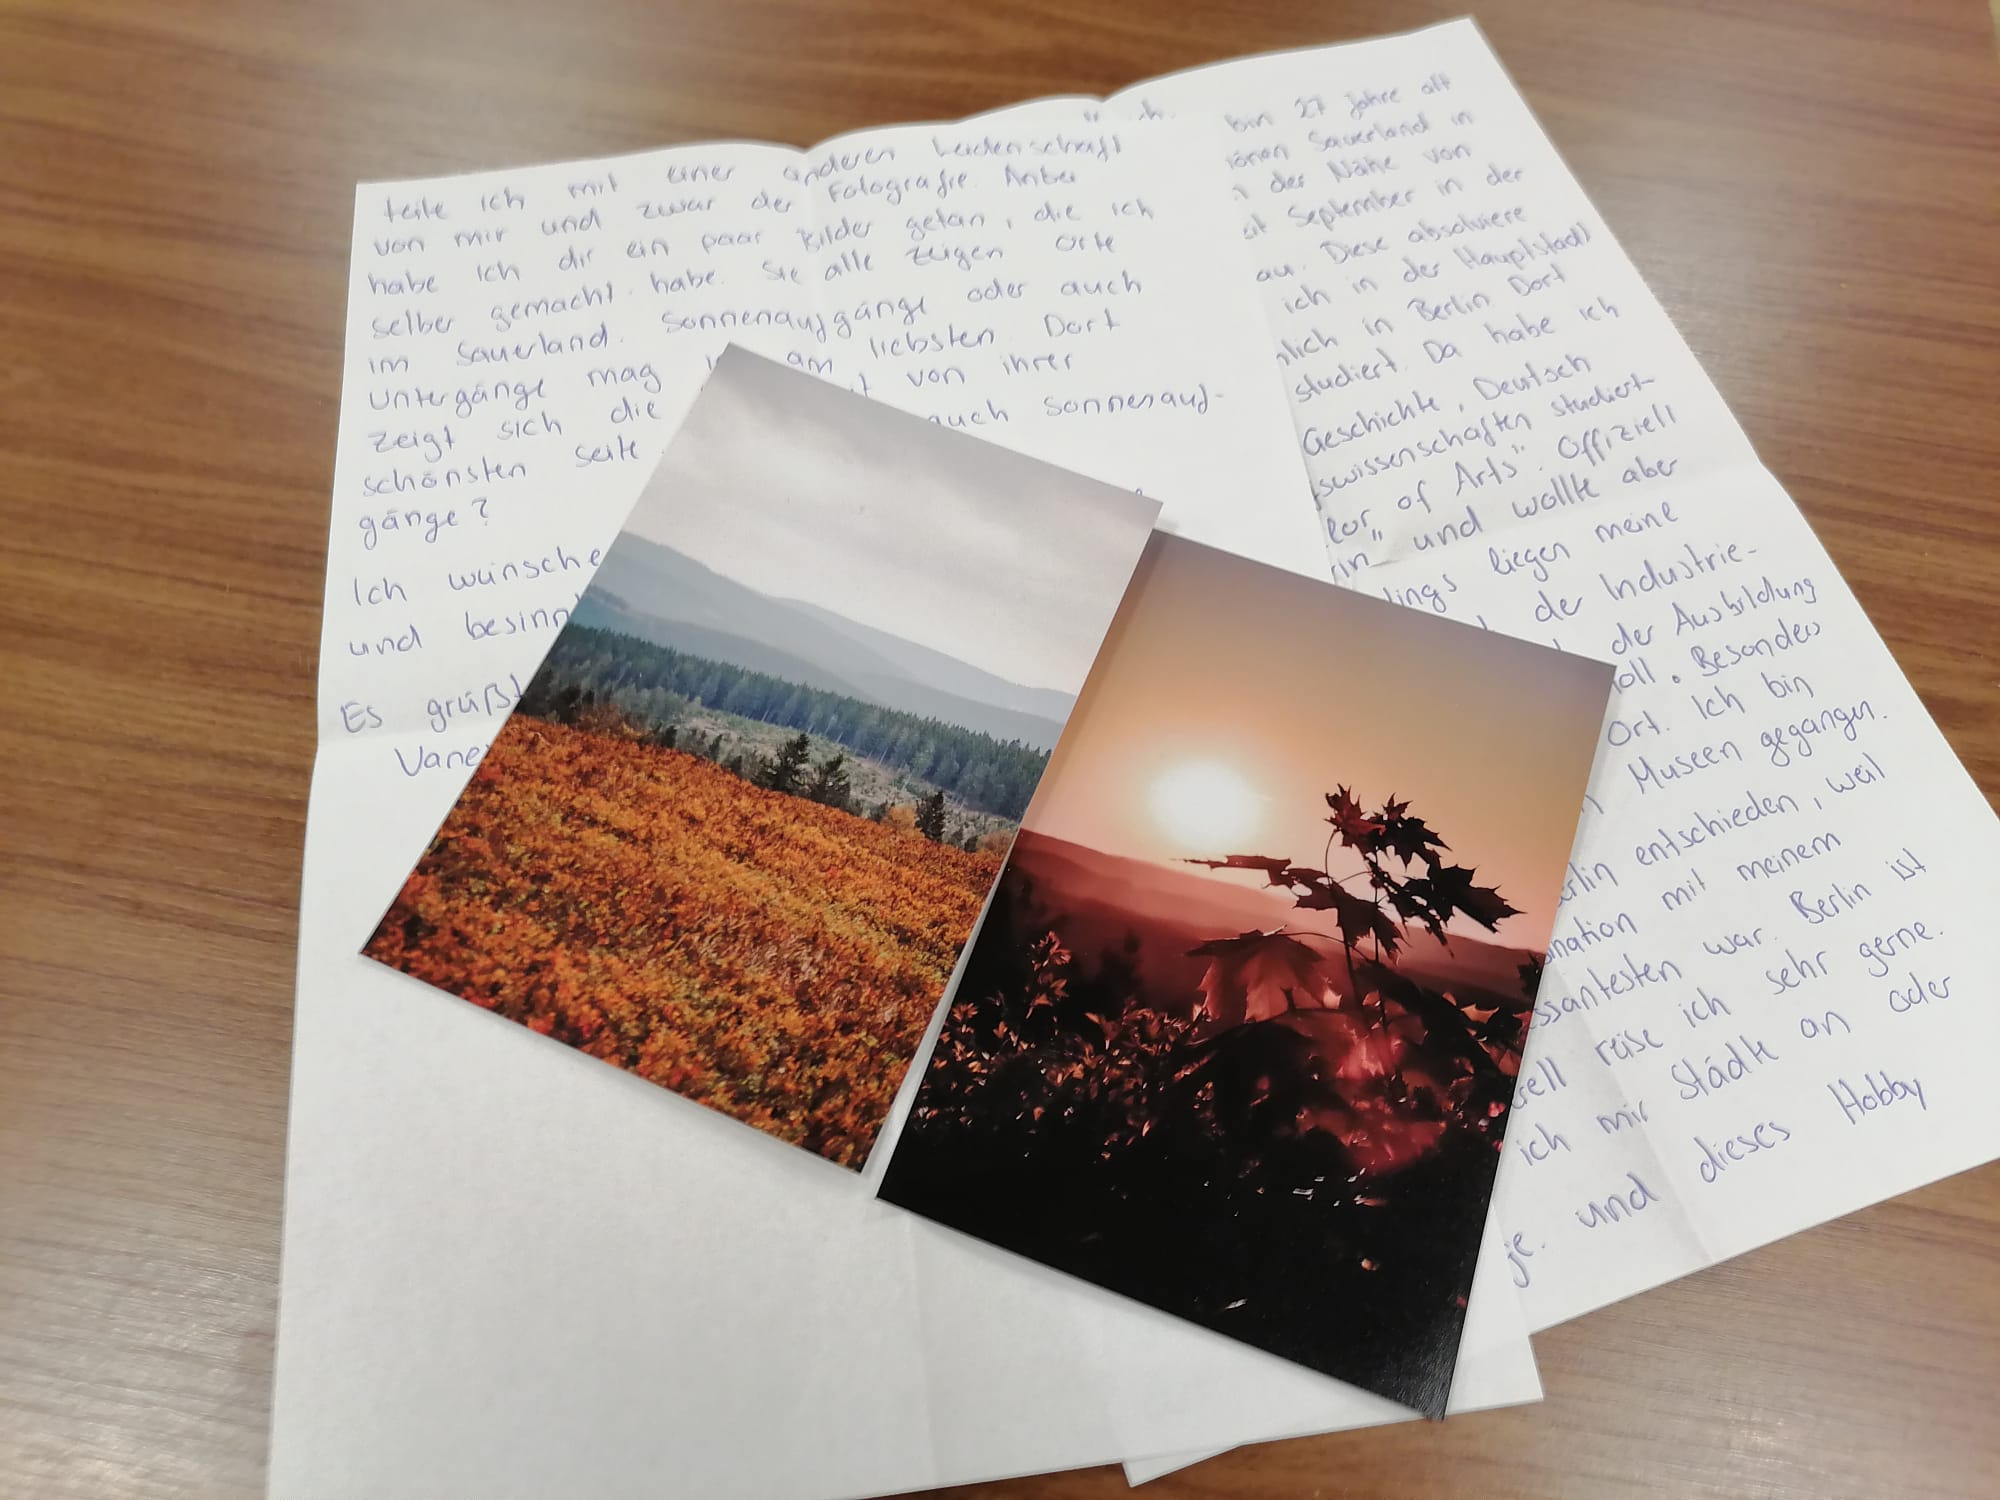 teile ich mit einer anderen Leidenschaft
von mir und zwar der Fotografie. Anbei
habe ich dir ein paar Bilder getan, die ich
selber gemacht habe. Sie alle zeigen Orte
im Sauerland. Sonnenaufgänge oder auch
untergänge mag am liebsten. Dort
zeigt sich die von ihrer
schönsten Seite auch Sonnenauf-
gänge?
Ich wünsche
und
Es grüßt
bin 27 Jahre alt
Sauerland in
der Nähe von
September in der
au. Diese absolviere
ich in der Hauptstadt
in Berlin. Dort
studiert. Da habe ich
Geschichte, Deutsch
swissenschaften studiert-
of Arts". Offiziell
und wollte aber
liegen meine
der Industrie-
der Ausbildung
Besonders
Ort. Ich bin
Museen gegangen.
entschieden, weil
mit meinem
war. Berlin ist
reise ich sehr gerne.
ich mir Städte an oder
je. und dieses Hobby